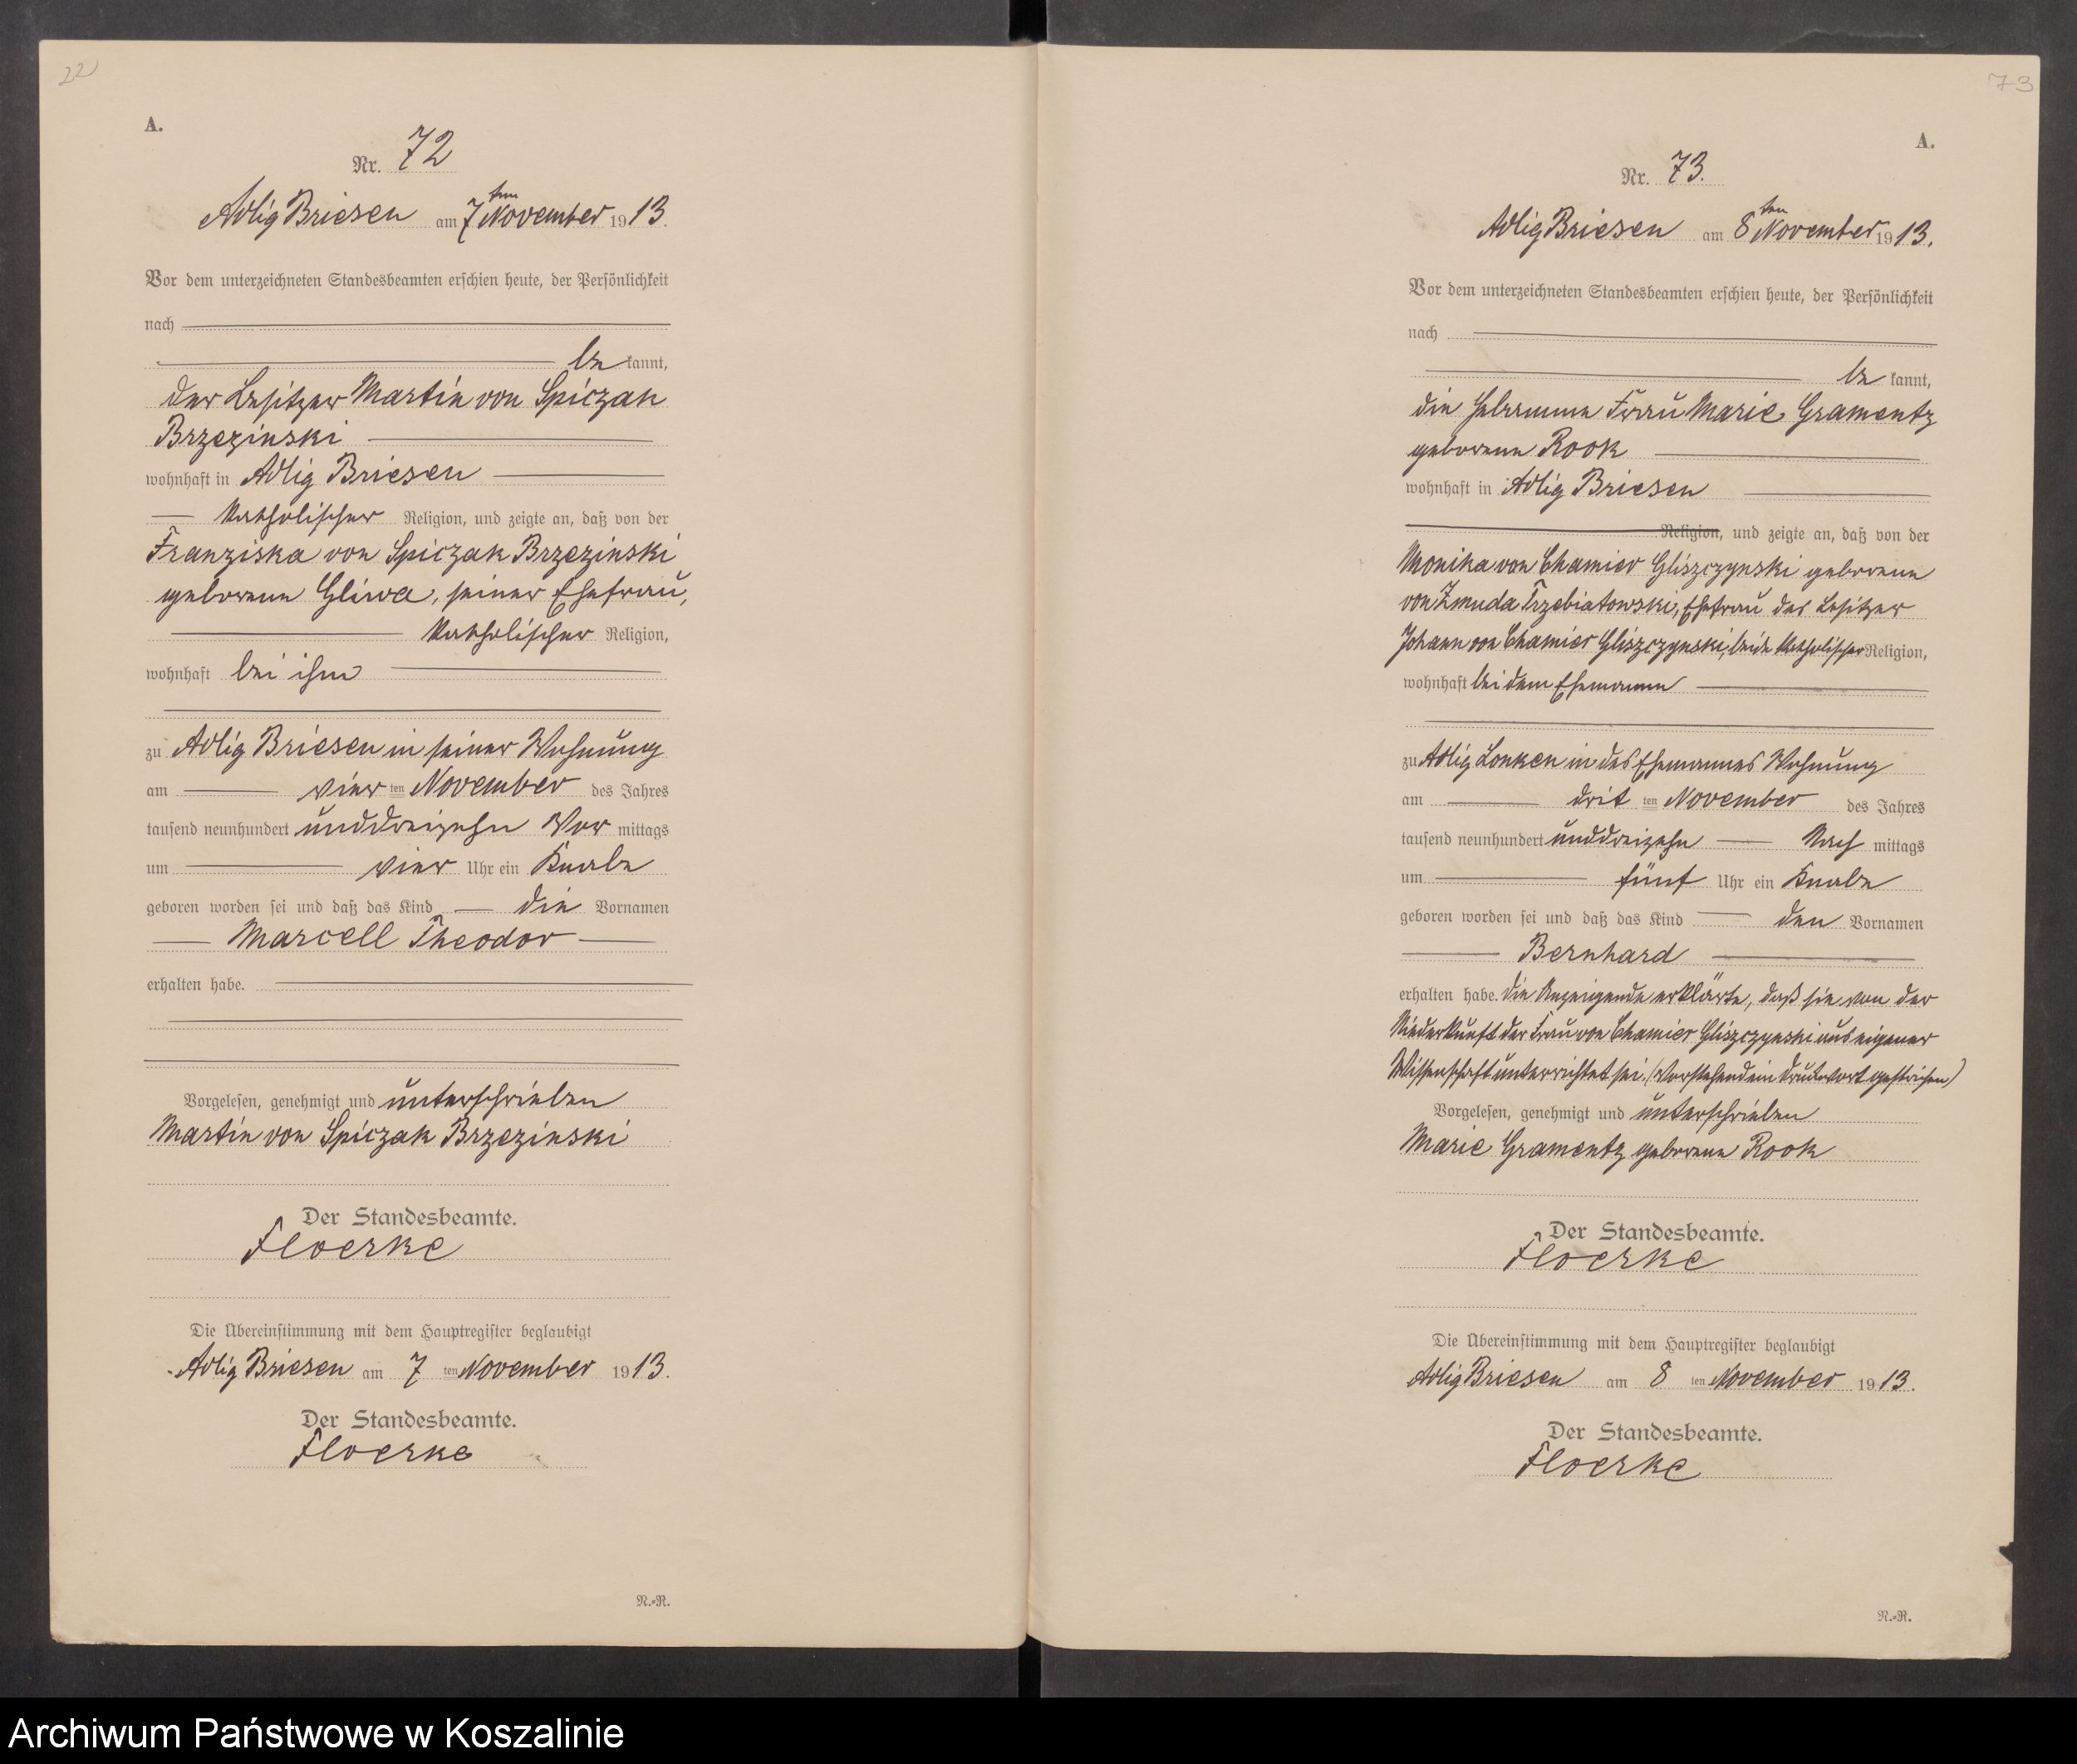 22
A.
Nr. 72
Adlig Briesen am 7ten November 1913.
Vor dem unterzeichneten Standesbeamten erschien heute, der Persönlichkeit
nach
be kannt,
der Besitzer Martin von Spiczak
Brzezinski
wohnhaft in Adlig Briesen
katholischer Religion, und zeigte an, daß von der
Franziska von Spiczak Brzezinski
geborene Gliwa, seiner Ehefrau,
katholischer Religion,
wohnhaft bei ihm
zu Adlig Briesen in seiner Wohnung
am vier ten November des Jahres
tausend neunhundert unddreizehn Vor mittags
um vier Uhr ein Knabe
geboren worden sei und daß das Kind die Vornamen
Marcell Theodor
erhalten habe.
Vorgelesen, genehmigt und unterschrieben
Martin von Spiczak Brzezinski
Der Standesbeamte.
Floerke
Die Übereinstimmung mit dem Hauptregister beglaubigt
Adlig Briesen am 7 ten November 1913.
Der Standesbeamte.
Floerke
N.-R.
73
A.
Nr. 73.
Adlig Briesen am 8ten November 1913.
Vor dem unterzeichneten Standesbeamten erschien heute, der Persönlichkeit
nach
be kannt,
die Hebamme Frau Marie Gramentz
geborene Rook
wohnhaft in Adlig Briesen
Religion, und zeigte an, daß von der
Monika von Chamier Gliszczynski geborene
von Zmuda Trzebiatowski, Ehefrau des Besitzer
Johann von Chamier Gliszczynski, beide katholischer Religion,
wohnhaft bei dem Ehemann
zu Adlig Lonken in des Ehemannes Wohnung
am drit ten November des Jahres
tausend neunhundert unddreizehn Nach mittags
um fünf Uhr ein Knabe
geboren worden sei und daß das Kind den Vornamen
Bernhard
erhalten habe. Die Anzeigende erklärte, daß sie von der
Niederkunft der Frau von Chamier Gliszczynski aus eigener
Wissenschaft unterrichtet sei. (Vorstehend ein Druckwort gestrichen)
Vorgelesen, genehmigt und unterschrieben
Marie Gramentz geborene Rook
Der Standesbeamte.
Floerke
Die Übereinstimmung mit dem Hauptregister beglaubigt
Adlig Briesen am 8 ten November 1913.
Der Standesbeamte.
Floerke
N.-R.
Archiwum Państwowe w Koszalinie